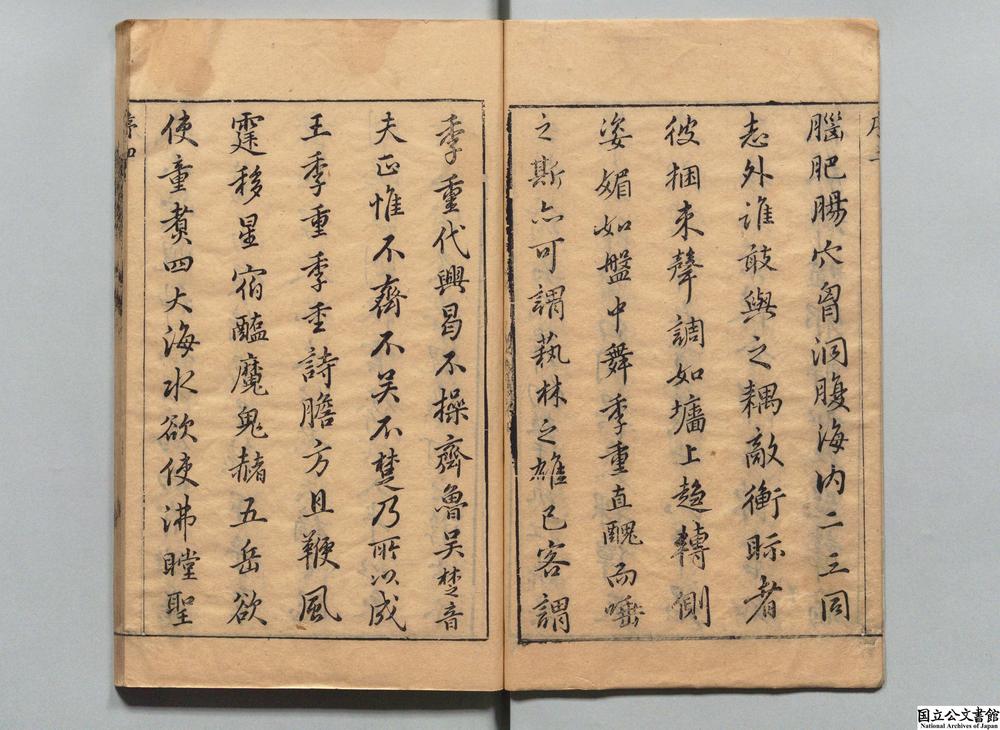 腦肥腸穴胷洞腹海内二三同
志外誰敢與之耦敵衡眎者
彼捆来聲調如墻上趋轉側
姿媚如盤中舞季重直醜而唾
之斯亦可謂藝林之雄已客謂
季重代興曷不操齊魯吴楚音
夫正惟不齊不吴不楚乃所以成
王季重季重詩膽方且鞭風
霆移星宿醢魔鬼赭五岳欲
使童煑四大海水欲使沸瞠聖
序四
国立公文書館
National Archives of Japan